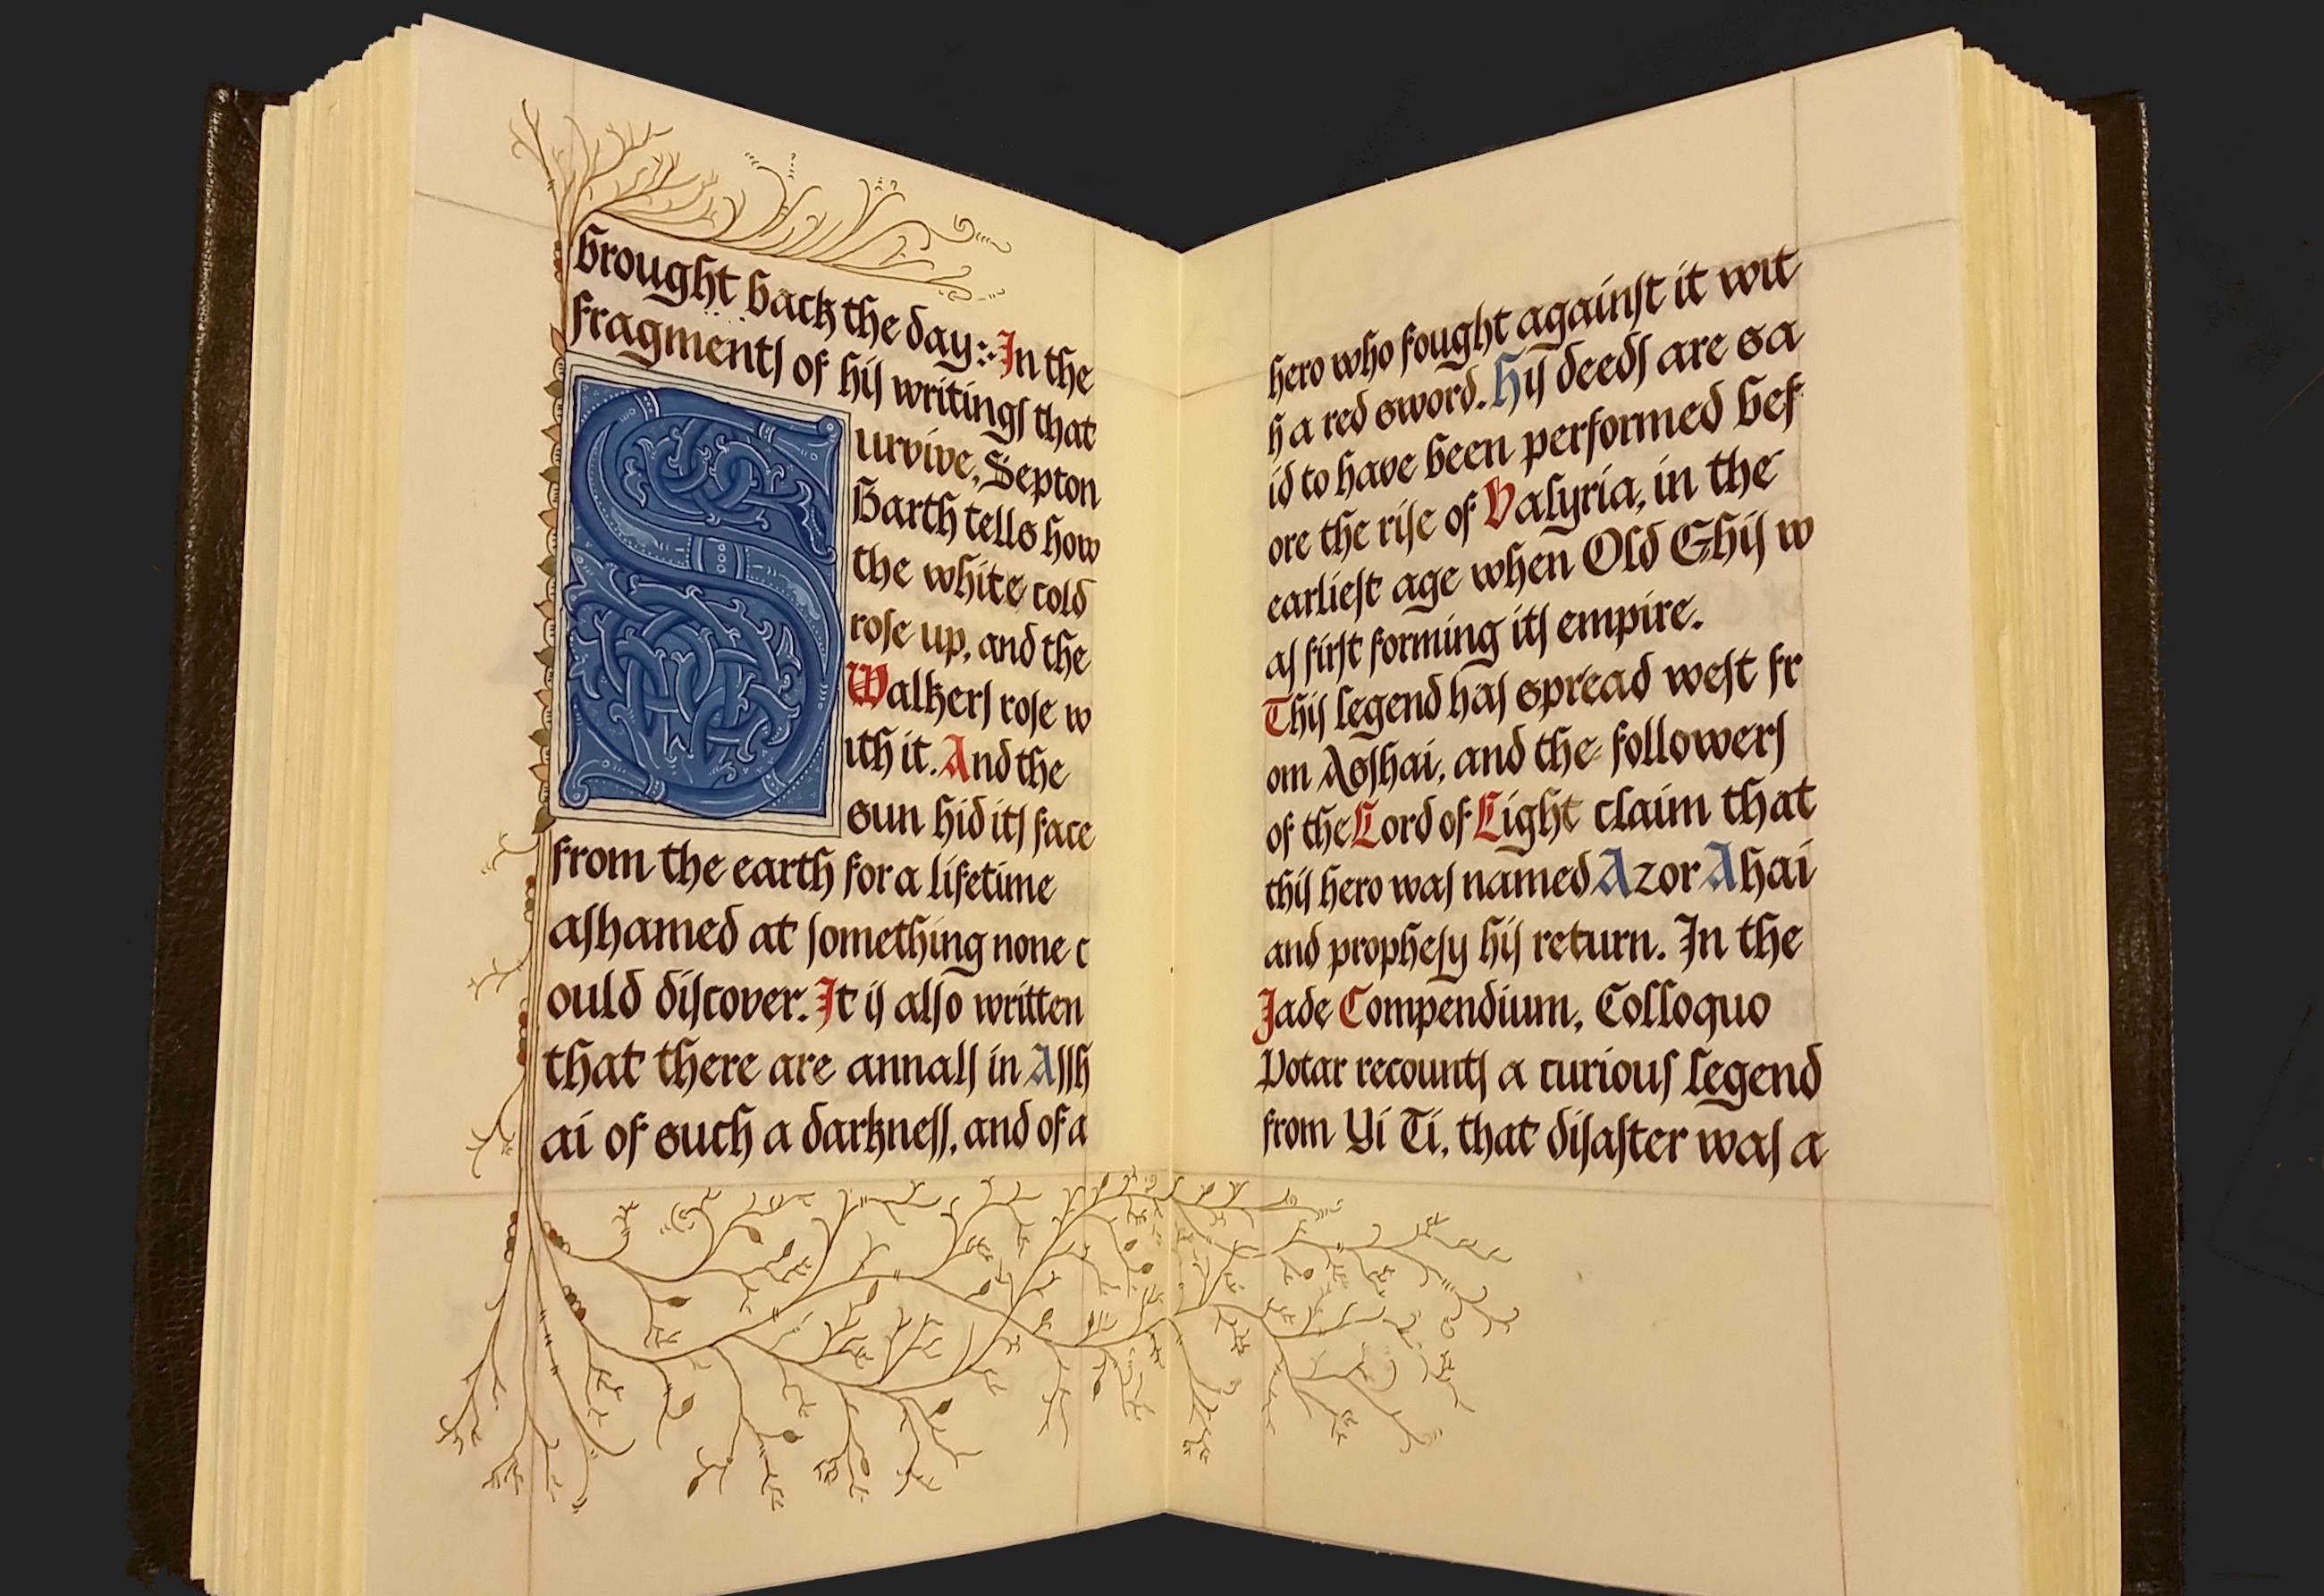 brought back the day:·In the
fragmentſ of hiſ writingſ that
Survive, Septon
Barth tells how
the white cold
roſe up, and the
Walkerſ roſe w
ith it. And the
sun hid itſ face
from the earth for a lifetime
aſhamed at ſomething none c
ould diſcover. It iſ alſo written
that there are annalſ in Aſſh
ai of such a darkneſſ, and of a
hero who fought againſt it wit
h a red sword. Hiſ deedſ are sa
id to have been performed bef
ore the riſe of Valyria, in the
earlieſt age when Old Ghiſ w
aſ firſt forming itſ empire.
Thiſ legend haſ spread weſt fr
om Asſhai, and the followerſ
of the Lord of Light claim that
thiſ hero waſ named Azor Ahai
and propheſy hiſ return. In the
Jade Compendium, Colloquo
Votar recountſ a curiouſ legend
from Yi Ti, that diſaſter waſ a